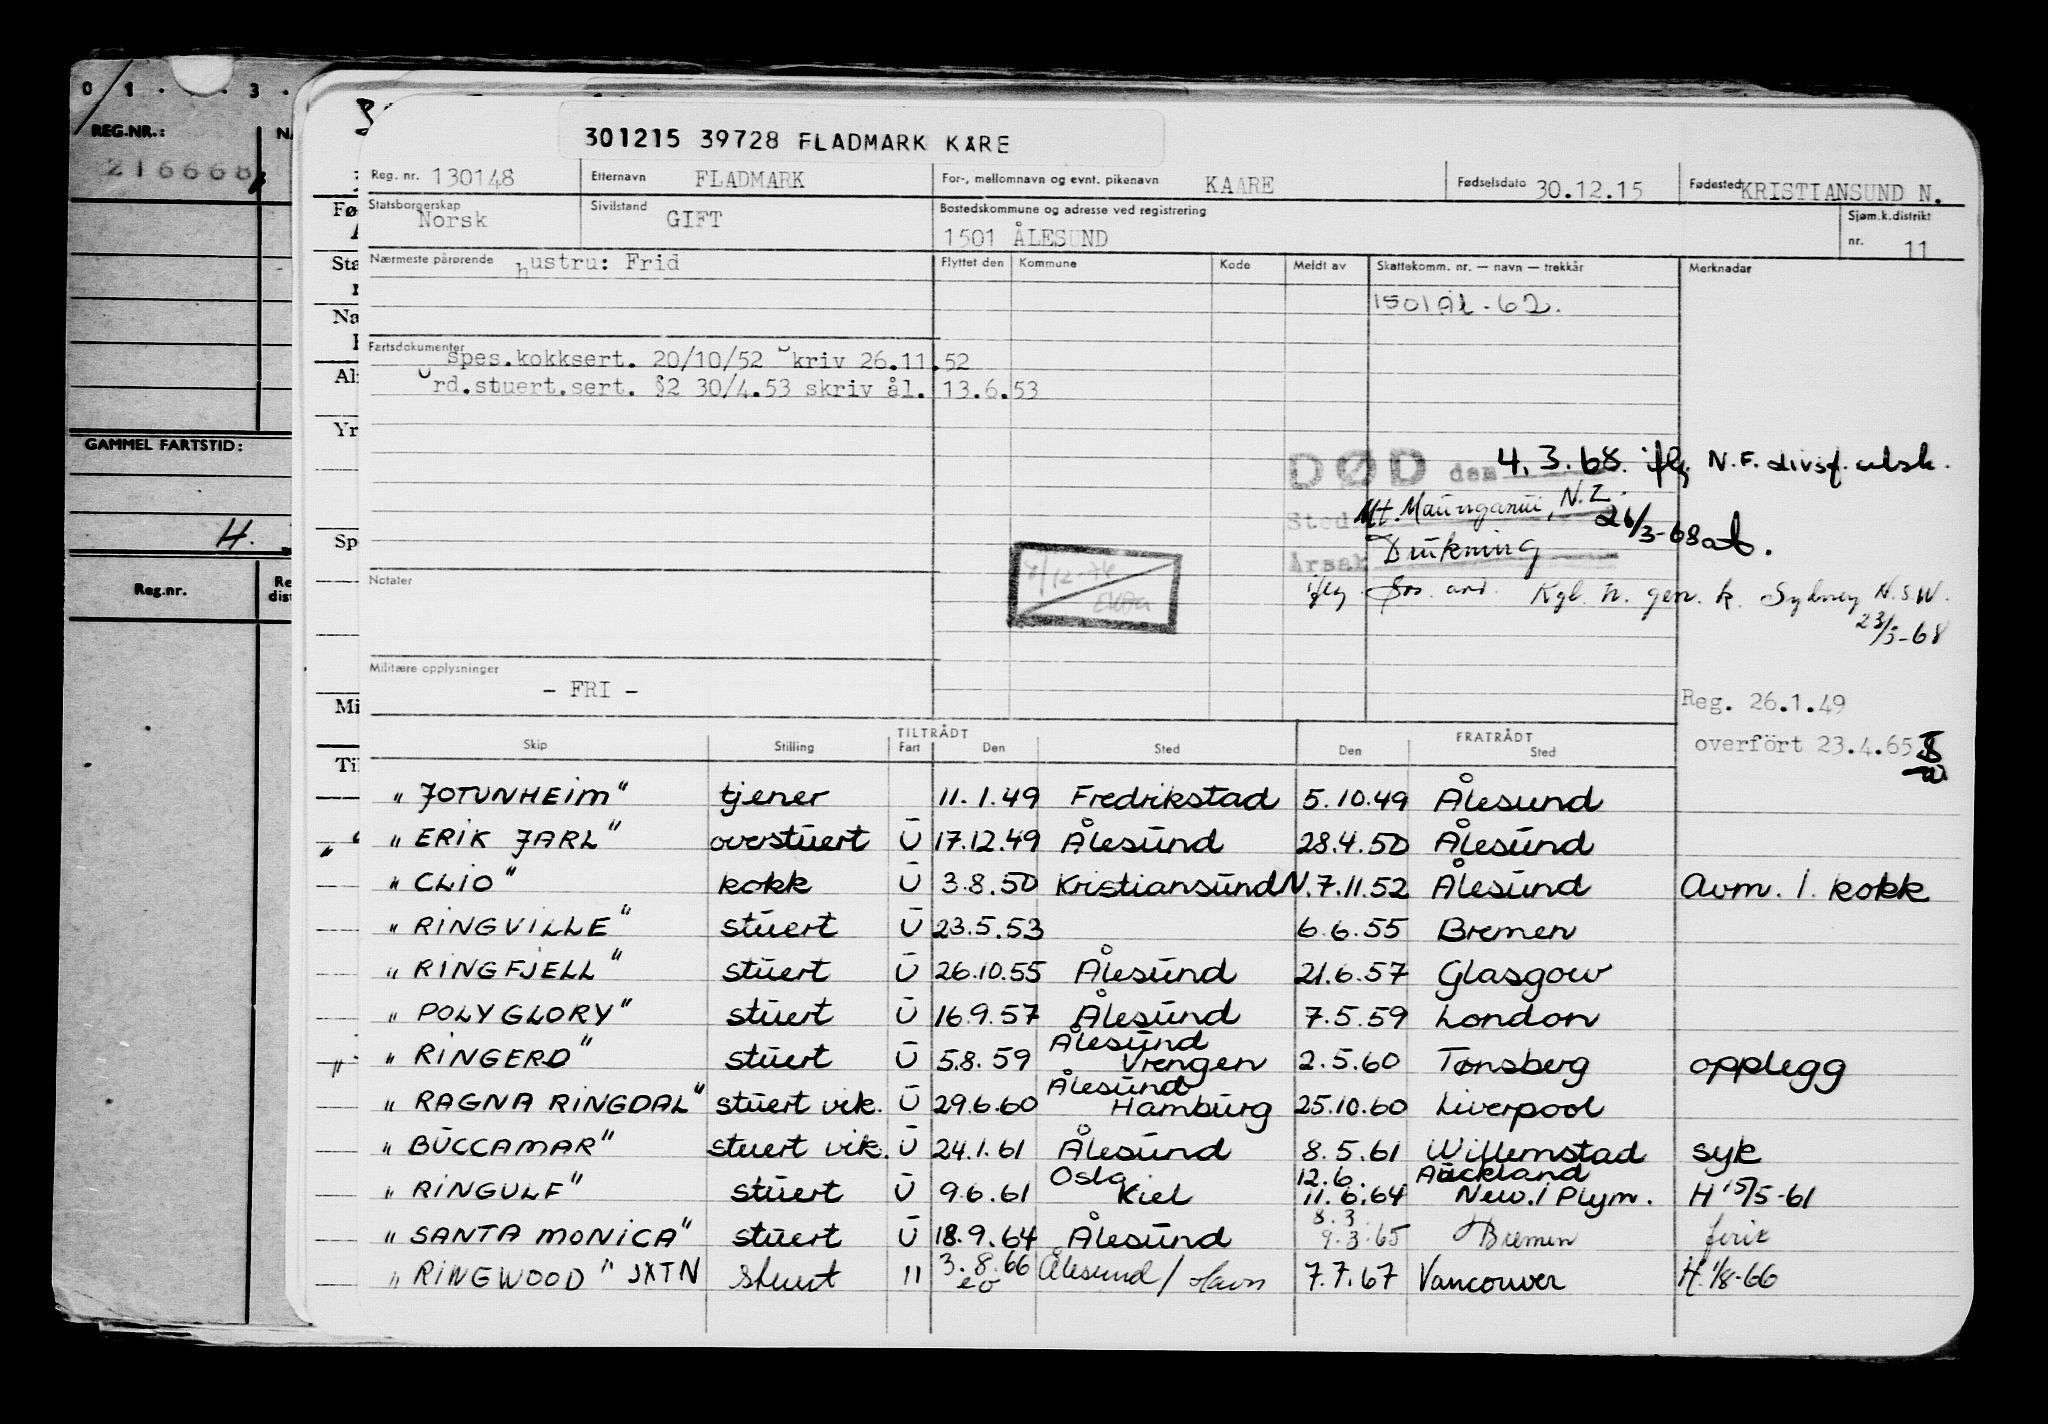 0 1 . . . 3 .
REG.NR.:
216668
GAMMEL FARTSTID:
H.
Reg.nr.
301215 39728 FLADMARK KÅRE
Reg. nr. 130148 Etternavn FLADMARK For-, mellomnavn og evnt. pikenavn KAARE Fødselsdato 30.12.15 Fødested KRISTIANSUND N.
Statsborgerskap Norsk Sivilstand GIFT Bostedskommune og adresse ved registrering 1501 ÅLESUND Sjøm.k.distrikt nr. 11
Nærmeste pårørende hustru: Frid Flyttet den Kommune Kode Meldt av Skattekomm. nr. — navn — trekkår Merknader
1501 Ål - 62.
Fartsdokumenter
spes.kokksert. 20/10/52 ukriv 26.11.52
Urd.stuert.sert. §2 30/4.53 skriv ål. 13.6.53
DØD den 4.3.68. iflg N.F. divsf. utsk.
Sted Mt. Maunganui, N.Z. 26/3-68 at.
Årsak Drukning
iflg. Kgl. n. gen. k. Sydney N.S.W.
23/3-68
Notater
8/12-74
Militære opplysninger
- FRI -
Reg. 26.1.49
overført 23.4.65
Skip Stilling TILTRÅDT Fart Den Sted FRATRÅDT Den Sted
"JOTUNHEIM" tjener 11.1.49 Fredrikstad 5.10.49 Ålesund
"ERIK JARL" overstuert U 17.12.49 Ålesund 28.4.50 Ålesund
"CLIO" kokk U 3.8.50 Kristiansund N. 7.11.52 Ålesund Avm. 1. kokk
"RINGVILLE" stuert U 23.5.53 6.6.55 Bremen
"RINGFJELL" stuert U 26.10.55 Ålesund 21.6.57 Glasgow
"POLYGLORY" stuert U 16.9.57 Ålesund 7.5.59 London
"RINGERD" stuert U 5.8.59 Ålesund Vrengen 2.5.60 Tønsberg opplegg
"RAGNA RINGDAL" stuert vik. U 29.6.60 Ålesund Hamburg 25.10.60 Liverpool
"BUCCAMAR" stuert vik. U 24.1.61 Ålesund 8.5.61 Willemstad syk
"RINGULF" stuert U 9.6.61 Oslo Kiel 12.6. 11.6.64 Auckland New. Plym. H 15/5-61
"SANTA MONICA" stuert U 18.9.64 Ålesund 8.3 9.3.65 Bremen ferie
"RINGWOOD" JXTN stuert 11 3.8.66 eo Ålesund / Havn 7.7.67 Vancouver H. 1/8-66